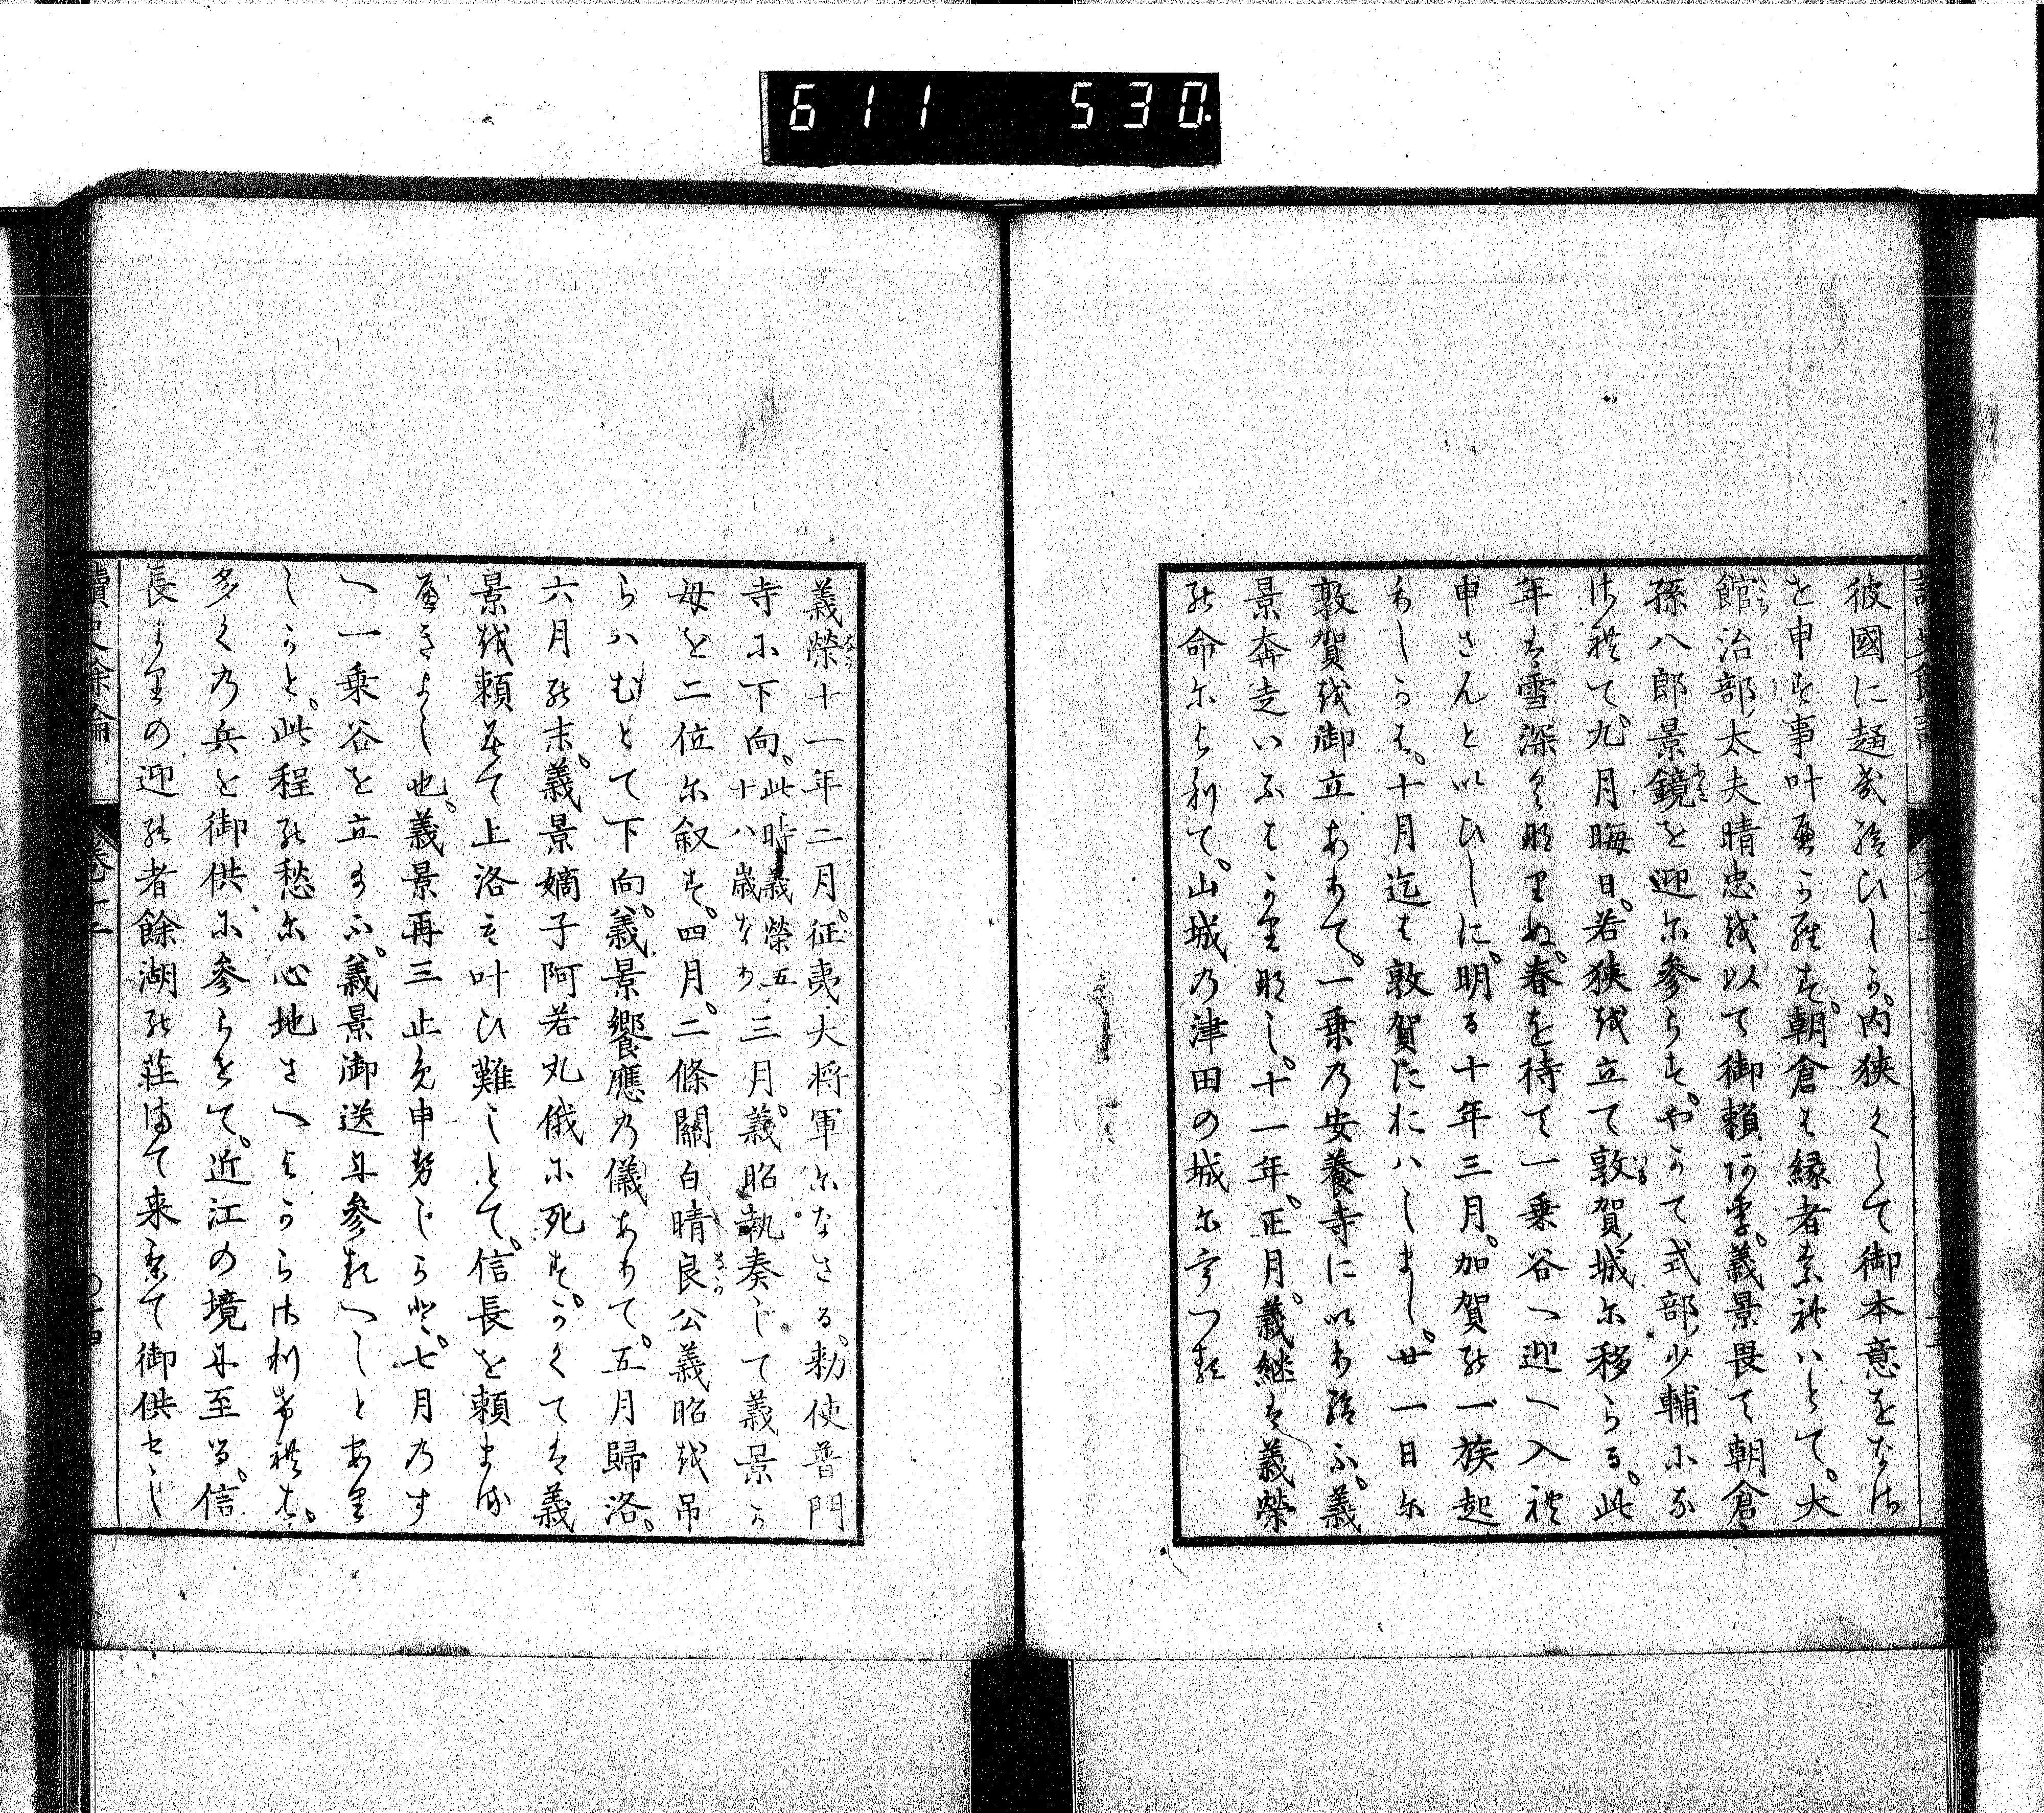 611 530.
彼國に趣き給ひしか、内狭くして御本意をなさ
を申す事叶べからず。朝倉は縁者なればとて。大
館治部太夫晴忠を以て御頼ありき。義景畏て朝倉
孫八郎景鏡を迎に参らす。やがて式部少輔にな
されて。九月晦日。若狭を立て敦賀城に移らる。此
年は雪深くなりぬ。春を待て一乗谷へ迎へ入れ
申さんといひしに。明る十年三月。加賀の一族起
りしかば。十月迄は敦賀におはしまし。廿一日に
敦賀を御立ありて。一乗の安養寺にいり給ふ。義
景奔走いふはかりなし。十一年。正月。義継は義榮
の命によりて。山城の津田の城にうつる
義榮十一年二月。征夷大将軍になさる。勅使普門
寺に下向。此時義榮五十八歳なり三月。義昭執奏して義景か
母を二位に叙す。四月。二條關白晴良公義昭を吊
らハむとて下向。義景饗應の儀ありて。五月歸洛。
六月の末。義景嫡子阿若丸俄に死す。かくては義
景を頼みて上洛は叶ひ難しとて。信長を頼ませ
べきよし也。義景再三止め申勢しらど。七月のす
へ一乗谷を立まふ。義景御送に参るへしとあり
しかと。此程の愁に心地さへよからさりければ。
多くの兵を御供に参らせて。近江の境に至る。信
長よりの迎の者餘湖の荘まて来りて御供せし
讀史餘論 卷十二